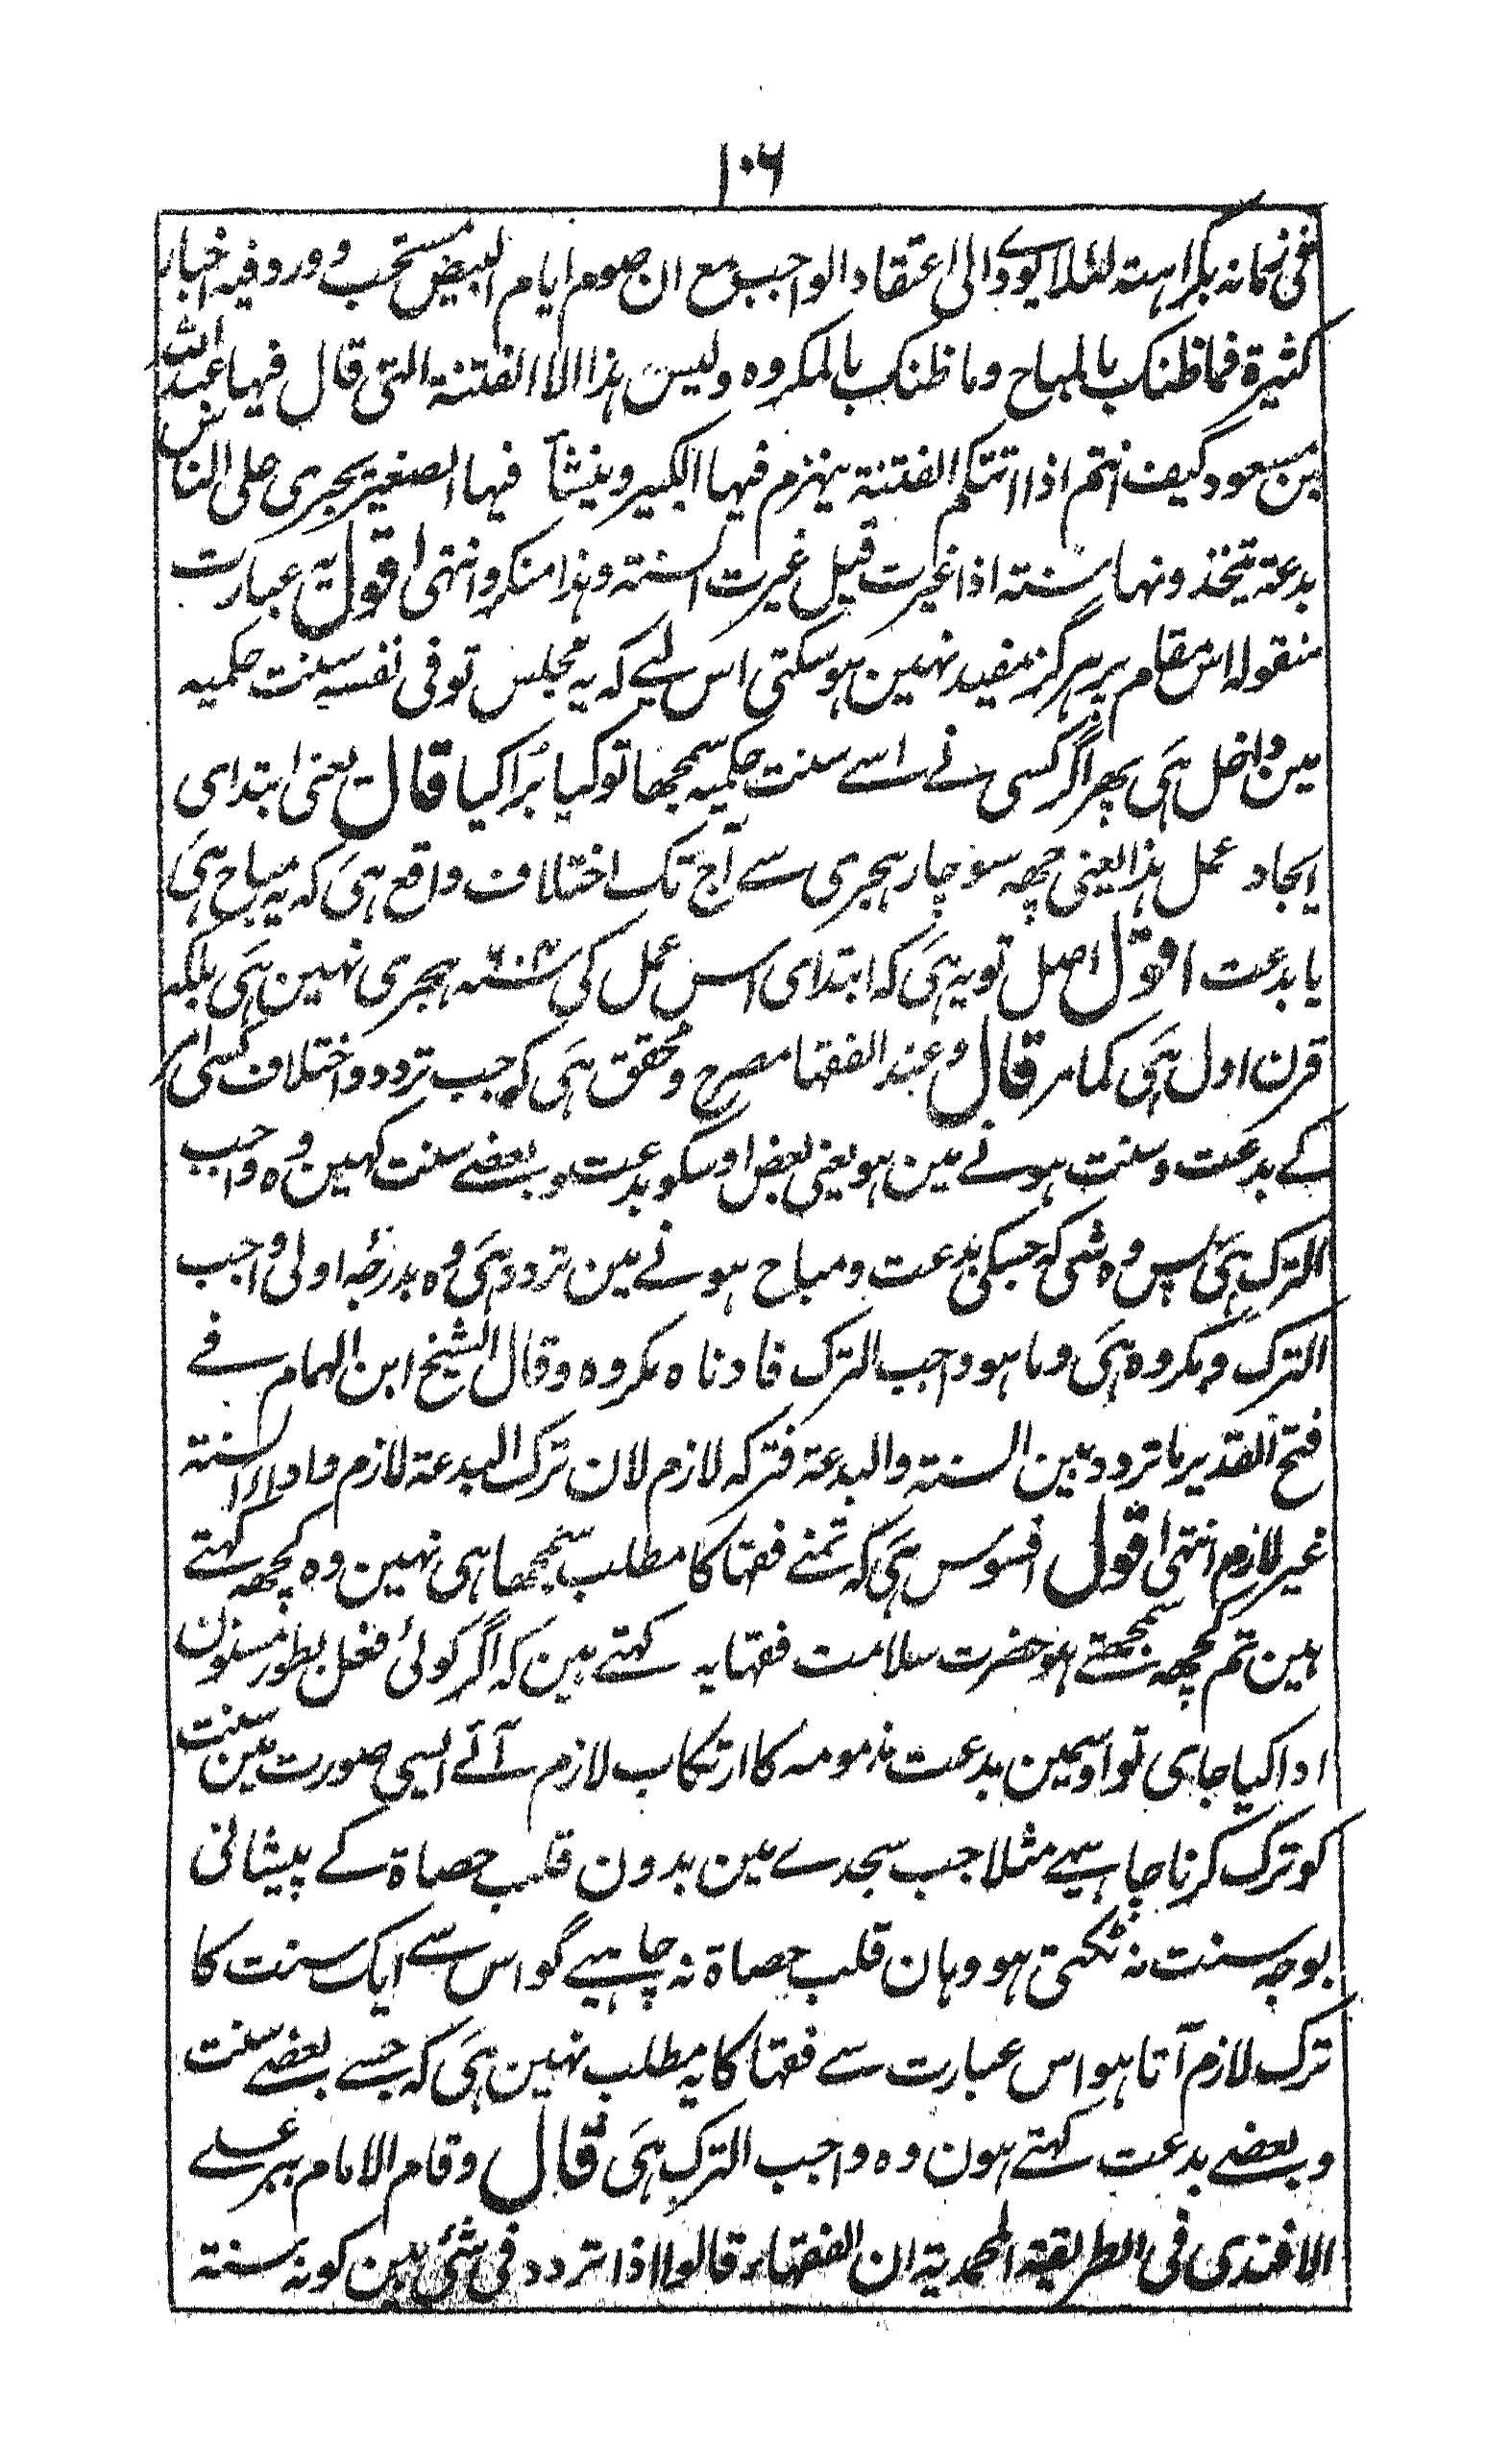 ۱۰۶
فی زمانہ بکراہتہ لئلا یودے الی اعتقاد الواجب مع ان صوم ایام البیض مستحب و ورد فیہ اخبار
کثیرۃ فما ظنک بالمباح وما ظنک بالمکروہ ولیس ہذا الا الفتنۃ التی قال فیہا عبد اللہ
بن مسعود کیف انتم اذا اتتکم الفتنۃ ینہزم فیہا الکبیر وینشأ فیہا الصغیر یجری علی الناس
بدعۃ یتخذونہا سنتہ اذا غیرت قیل غیرت السنتہ وہذا منکر انتہی اقول یہ عبارت
منقولہ اس مقام پر ہرگز مفید نہین ہو سکتی اس لیے کہ یہ مجلس تو فی نفسہ سنت حکمیہ
مین داخل ہی پھر اگر کسی نے اسے سنت حکمیہ سمجھا تو کیا بُرا کیا قال یعنی ابتدای
ایجاد عمل ہذا یعنی چھہ سو چار ہجری سے آج تک اختلاف واقع ہی کہ یہ مباح ہی
یا بدعت اقول اصل تو یہ ہی کہ ابتدای اس عمل کی سنہ ۶۰۴ ہجری نہین ہی بلکہ
قرن اول ہی کما مر قال و عند الفقہا مصرح و محقق ہی کہ جب تردد و اختلاف کسی امر
کے بدعت و سنت ہونے مین ہو یعنی بعض اوسکو بدعت و بعضے سنت کہین وہ واجب
الترک ہی پس وہ شی کہ جسکی بدعت و مباح ہونے مین تردد ہی وہ بدرجہ اولی واجب
الترک و مکروہ ہی وما ہو واجب الترک فادناہ مکروہ وقال الشیخ ابن الہمام فے
فتح القدیر ما تردد بین السنتہ والبدعۃ فترکہ لازم لان ترک البدعۃ لازم واداء السنتہ
غیر لازم انتہی اقول افسوس ہی کہ تمنے فقہا کا مطلب سمجھا ہی نہین وہ کچھہ کہتے
ہین تم کچھہ سمجھتے ہو حضرت سلامت فقہا یہ کہتے ہین کہ اگر کوئی فعل بطور مسنون
ادا کیا جای تو اوسمین بدعت مذمومہ کا ارتکاب لازم آئے ایسی صورت مین سنت
کو ترک کرنا چاہیے مثلا جب سجدے مین بدون قلب حصاۃ کے پیشانی
بوجہ سنت نہ ٹکتی ہو وہان قلب حصاۃ نہ چاہیے گو اس سے ایک سنت کا
ترک لازم آتا ہو اس عبارت سے فقہا کا یہ مطلب نہین ہی کہ جسے بعضے سنت
و بعضے بدعت کہتے ہون وہ واجب الترک ہی قال وقام الامام بیر علے
الافندی فی الطریقۃ المحمدیۃ ان الفقہاء قالوا اذا تردد فی شئ بین کونہ سنتہ